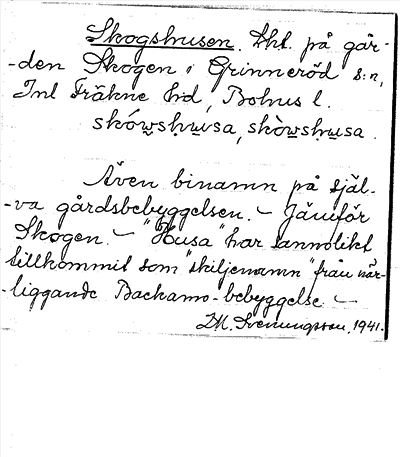 Skogshusen. Trkt. på går-
-den Skogen i Grinneröd s:n,
Inl Fräkne hd, Bohus l.
skówshusa, skòwshusa.
Även binamn på själ-
-va gårdsbebyggelsen. – Jämför
Skogen. – "Husa" har sannolikt
tillkommit som "skiljenamn" från när-
-liggande Backamo-bebyggelse –
M. Svenungsson, 1941.